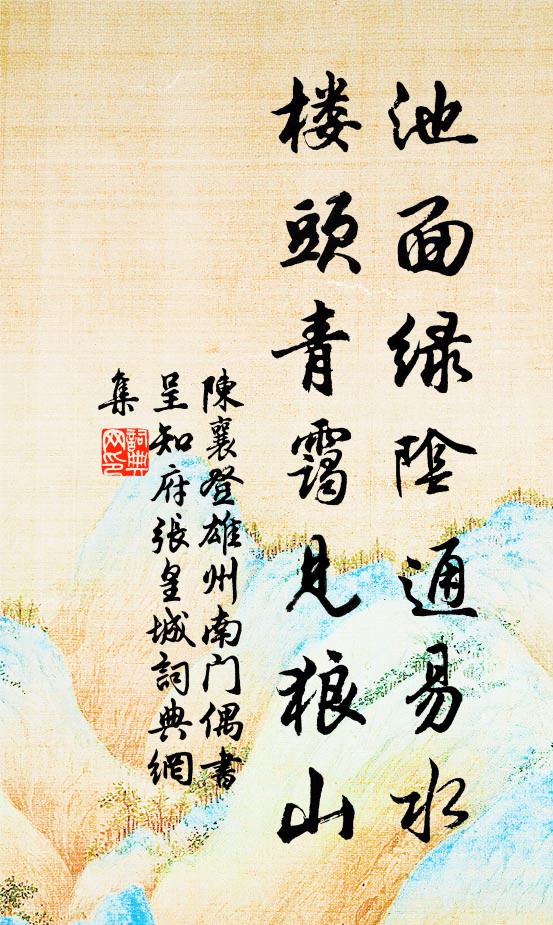 池面绿阴通易水
楼头青霭见狼山
陳襄登雄州南门偶書
呈知府張皇城詞典網
集
詞典網印